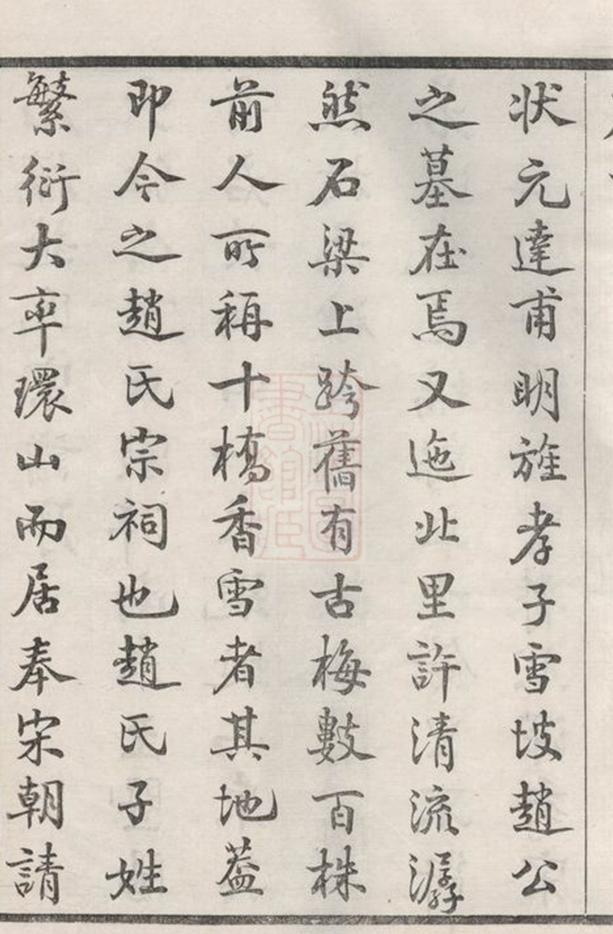 状元達甫明旌孝子雪坡趙公
之墓在焉又迤北里許清流潺
然石梁上跨舊有古梅數百株
前人所稱十橋香雪者其地葢
即今之趙氏宗祠也趙氏子姓
繁衍大率環山而居奉宋朝請